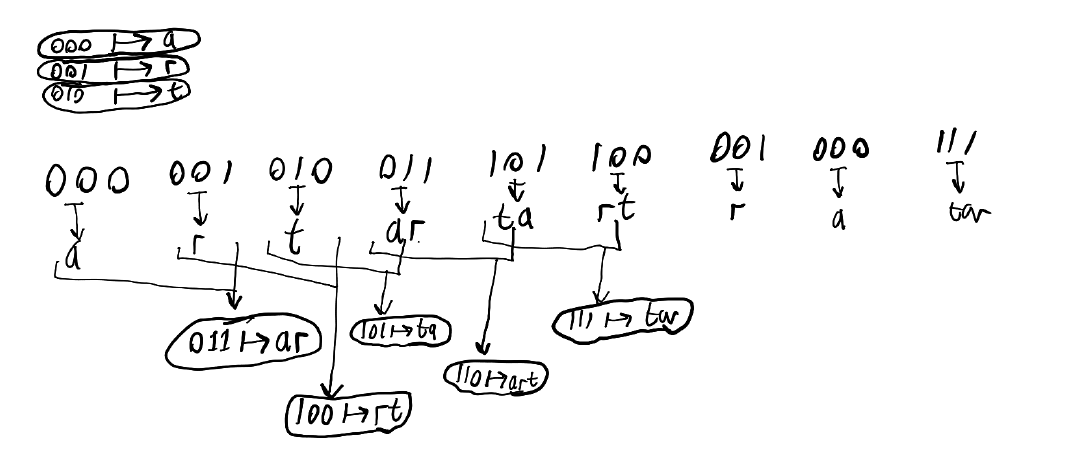 000 ↦ a
001 ↦ r
010 ↦ t
000 001 010 011 101 100 001 000 111
a r t ar ta rt r a tar
011 ↦ ar
101 ↦ ta
111 ↦ tar
110 ↦ art
100 ↦ rt